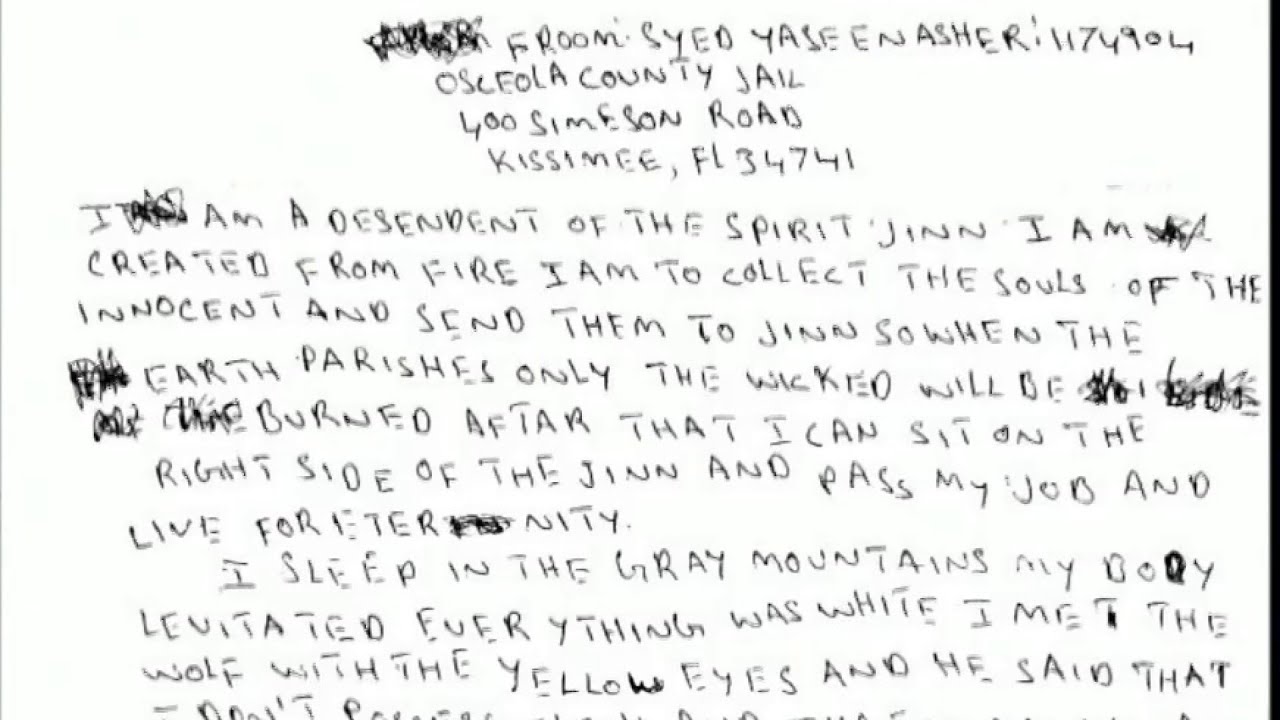 FROOM: SYED YASEEN ASHER: 1174904
OSCEOLA COUNTY JAIL
400 SIMESON ROAD
KISSIMEE, Fl 34741
I AM A DESENDENT OF THE SPIRIT JINN I AM
CREATED FROM FIRE I AM TO COLLECT THE SOULS OF THE
INNOCENT AND SEND THEM TO JINN SO WHEN THE
EARTH PARISHES ONLY THE WICKED WILL BE
BURNED AFTAR THAT I CAN SIT ON THE
RIGHT SIDE OF THE JINN AND PASS MY JOB AND
LIVE FOR ETERNITY.
I SLEEP IN THE GRAY MOUNTAINS MY BODY
LEVITATED EVERYTHING WAS WHITE I MET THE
WOLF WITH THE YELLOW EYES AND HE SAID THAT
I DON'T